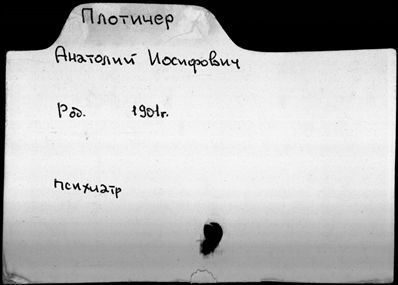 Плотичер
Анатолий Иосифович
Род. 1901г.
психиатр